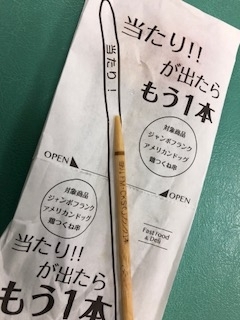 当たり!!
が出たら
もう1本
当たり!
対象商品
ジャンボフランク
アメリカンドッグ
鶏つくね串
OPEN
OPEN
対象商品
ジャンボフランク
アメリカンドッグ
鶏つくね串
Fast Food
& Deli
当たり!!
が出たら
もう1本